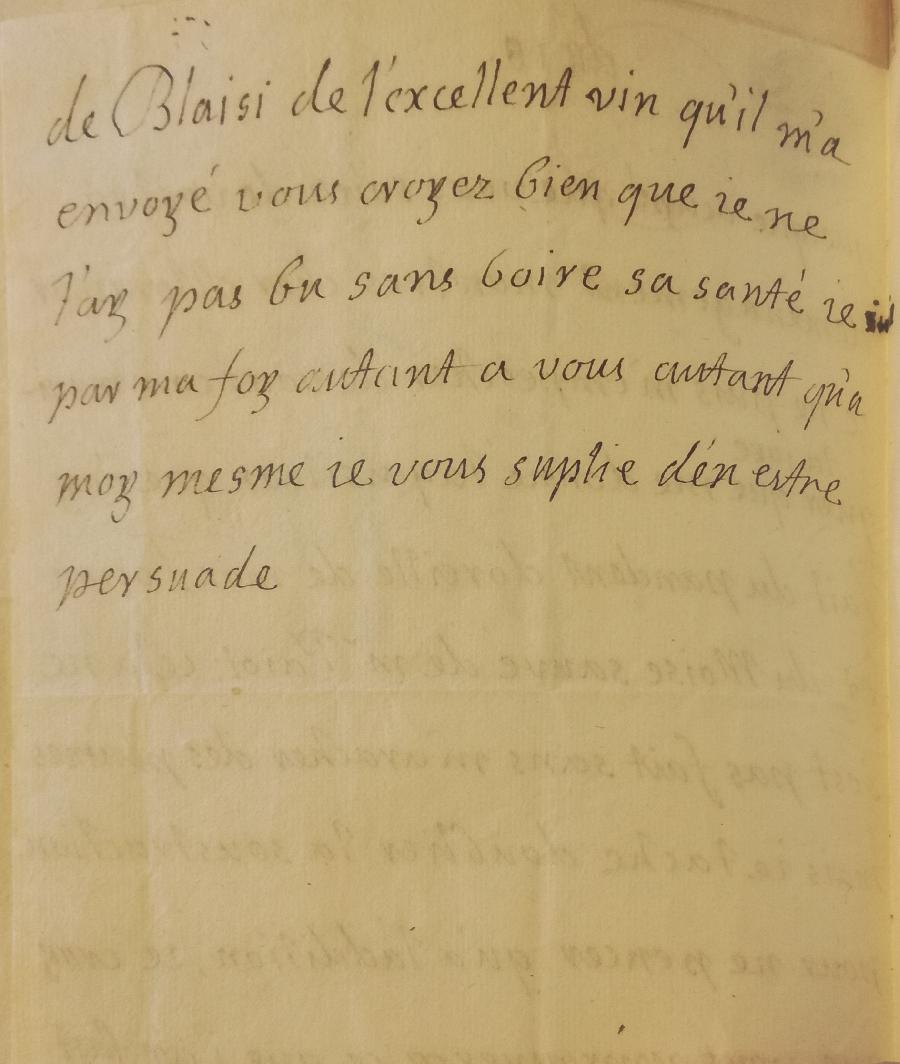 de Blaisi de l'éxcellent vin qu'il m'a
envoyé vous croyez bien que ie ne
l'ay pas bu sans boire sa santé ie
par ma foy autant a vous autant qu'a
moy mesme ie vous suplie d'én estre
persuade